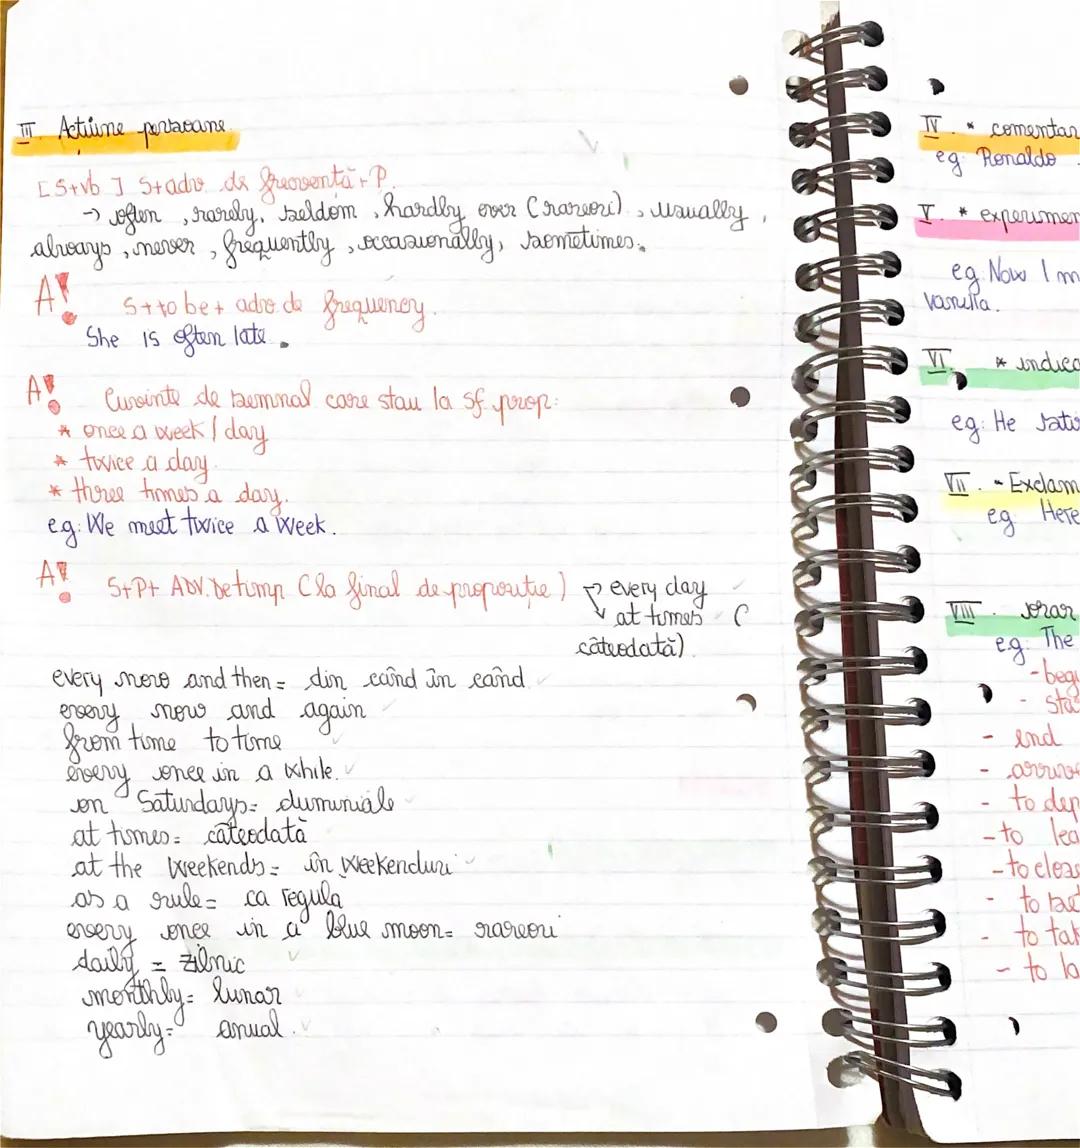 III. Acțiune persoane
[S+vb] S+adv de frecventă+P.
-> often, rarely, seldom, hardly ever (rareori), usually,
always, never, frequently, occasionally, sometimes.
A! S+to be+ adv de frequency.
She is often late.
A! Cuvinte de semnal care stau la sf. prop:
* once a week / day
* twice a day.
* three times a day.
eg: We meet twice a week.
A! S+P+ ADV. De timp (la final de propoziție) -> every day
-> at times (
câteodată).
every now and then = din când în când
every now and again
from time to time
every once in a while.
on Saturdays = duminicile
at times = câteodată
at the weekends = în weekenduri
as a rule = ca regula
every once in a blue moon = rareori
daily = zilnic
monthly = lunar
yearly = anual.
IV. * comentar
eg: Ronaldo
V. * experimen
eg: Now I m
vanilla.
VI. * indica
eg: He
VII. - Exclam
eg: Here
VIII. orar
eg: The
- beg
- sta
- end
- arrive
- to dep
- to lea
- to close
- to
- to tak
- to la